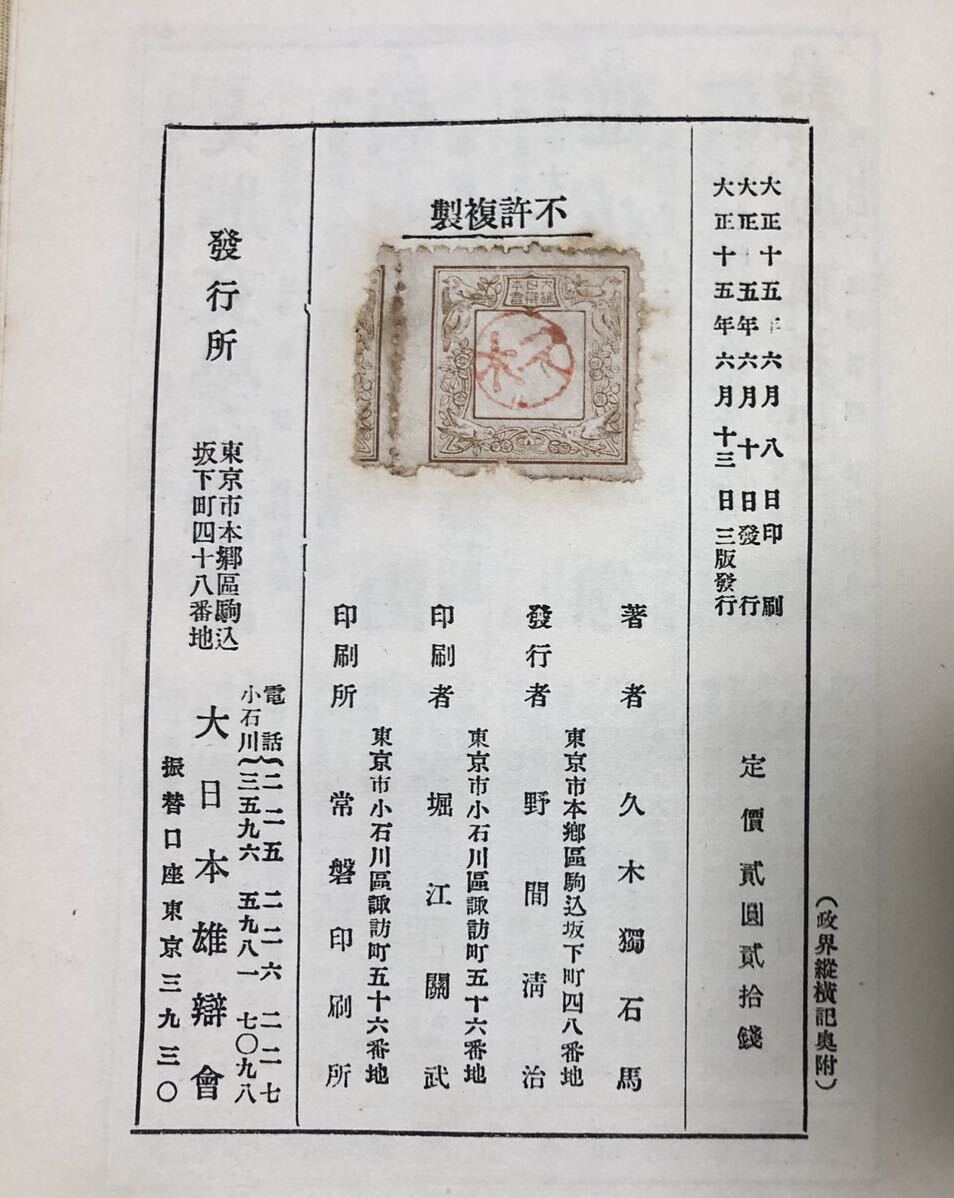 (政界縱橫記奧附)
大正十五年六月八日印刷
大正十五年六月十日發行
大正十五年六月十三日三版發行
定價貳圓貳拾錢
不許複製
大日本雄辯會
久木
著者 久木獨石馬
東京市本鄉區駒込坂下町四八番地
發行者 野間淸治
東京市小石川區諏訪町五十六番地
印刷者 堀江關武
東京市小石川區諏訪町五十六番地
印刷所 常磐印刷所
發行所
東京市本鄉區駒込
坂下町四十八番地
電話 二二五 二二六 二二七
小石川 三五九六 五九八一 七〇九八
大日本雄辯會
振替口座東京三九三〇